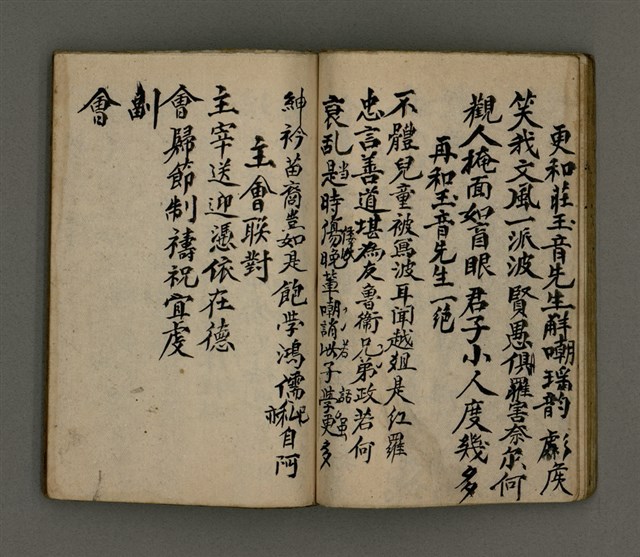 更和莊玉音先生解嘲瑤韵 彪侯
笑我文風一派波賢愚俱羅害奈尔何
觀人掩面如盲眼君子小人度幾多
再和玉音先生一絕
不體兒童被罵波耳聞越俎是紅羅
忠言善道堪為友魯衛兄弟政若何
衰乱是時傷晚輩嘲誚以子學更多
紳衿苗裔豈如是飽學鴻儒私自阿
主會联對
主宰送迎憑依在德
會歸節制禱祝宜虔
劃
會